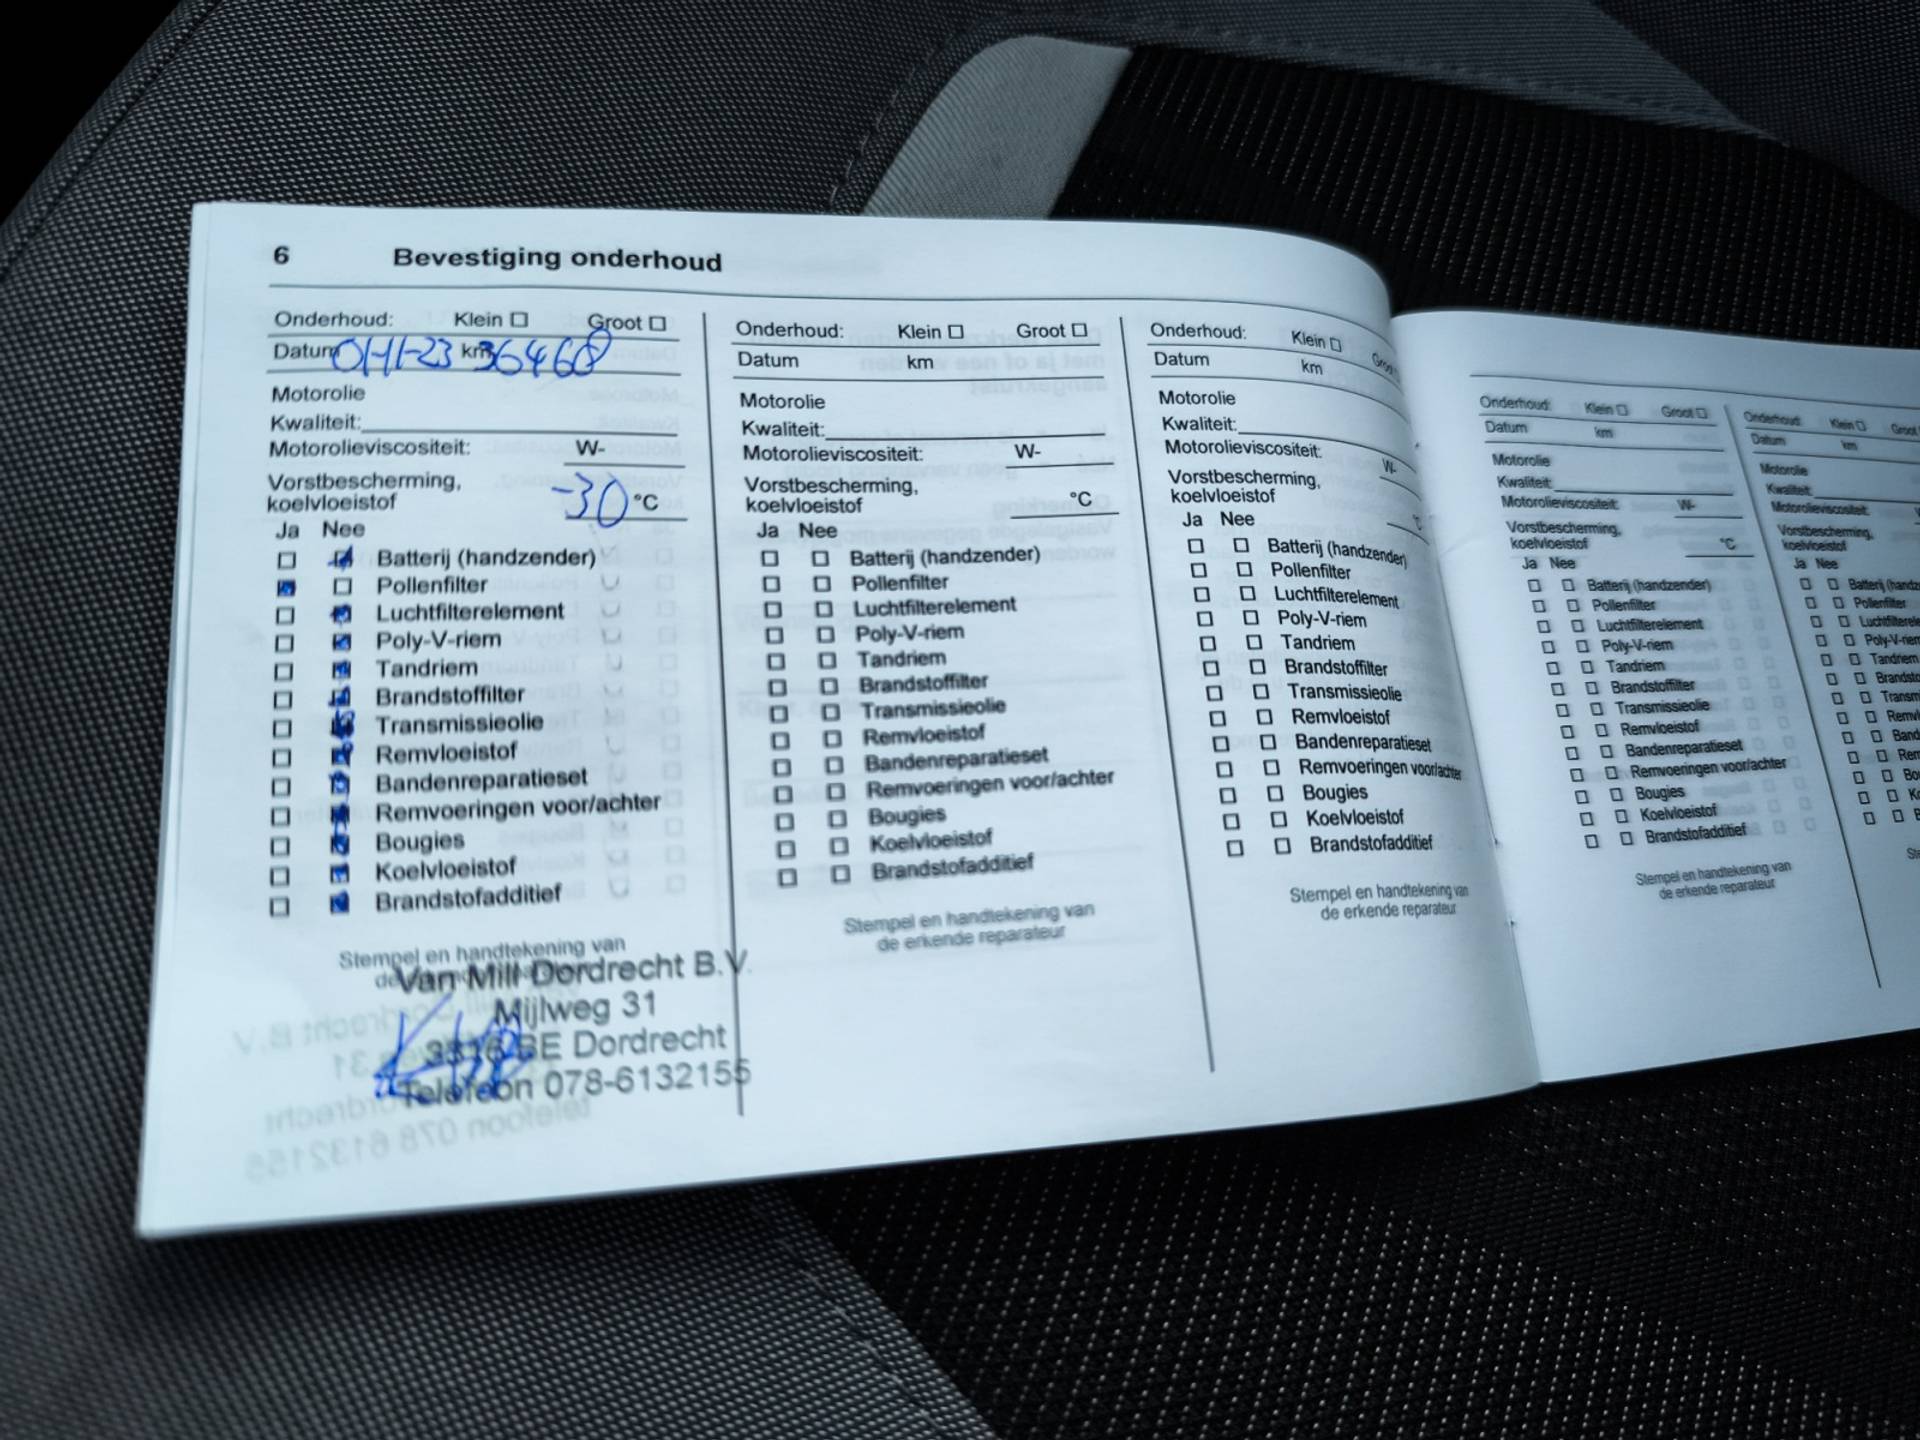 6 Bevestiging onderhoud
Onderhoud: Klein Groot
Datum km 36468
Motorolie
Kwaliteit:
Motorolieviscositeit: W-
Vorstbescherming,
koelvloeistof -30 °C
Ja Nee
Batterij (handzender)
Pollenfilter
Luchtfilterelement
Poly-V-riem
Tandriem
Brandstoffilter
Transmissieolie
Remvloeistof
Bandenreparatieset
Remvoeringen voor/achter
Bougies
Koelvloeistof
Brandstofadditief
Stempel en handtekening van
Van Mill Dordrecht B.V.
Mijlweg 31
3316 BE Dordrecht
Telefoon 078-6132155
Onderhoud: Klein Groot
Datum km
Motorolie
Kwaliteit:
Motorolieviscositeit: W-
Vorstbescherming,
koelvloeistof °C
Ja Nee
Batterij (handzender)
Pollenfilter
Luchtfilterelement
Poly-V-riem
Tandriem
Brandstoffilter
Transmissieolie
Remvloeistof
Bandenreparatieset
Remvoeringen voor/achter
Bougies
Koelvloeistof
Brandstofadditief
Stempel en handtekening van
de erkende reparateur
Onderhoud: Klein
Datum km
Motorolie
Kwaliteit:
Motorolieviscositeit: W-
Vorstbescherming,
koelvloeistof
Ja Nee
Batterij (handzender)
Pollenfilter
Luchtfilterelement
Poly-V-riem
Tandriem
Brandstoffilter
Transmissieolie
Remvloeistof
Bandenreparatieset
Remvoeringen voor/achter
Bougies
Koelvloeistof
Brandstofadditief
Stempel en handtekening van
de erkende reparateur
Onderhoud: Klein Groot
Datum km
Motorolie
Kwaliteit:
Motorolieviscositeit: W-
Vorstbescherming,
koelvloeistof °C
Ja Nee
Batterij (handzender)
Pollenfilter
Luchtfilterelement
Poly-V-riem
Tandriem
Brandstoffilter
Transmissieolie
Remvloeistof
Bandenreparatieset
Remvoeringen voor/achter
Bougies
Koelvloeistof
Brandstofadditief
Stempel en handtekening van
de erkende reparateur
Onderhoud: Klein Groot
Datum km
Motorolie
Kwaliteit:
Motorolieviscositeit:
Vorstbescherming,
koelvloeistof
Ja Nee
Batterij
Pollenfilter
Tandriem